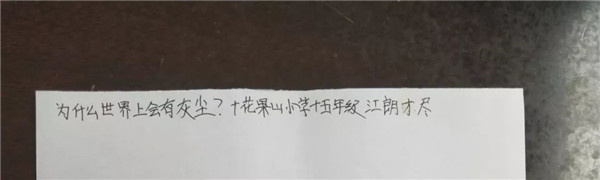 为什么世界上会有灰尘？十花果山小学十五年级 江朗才尽